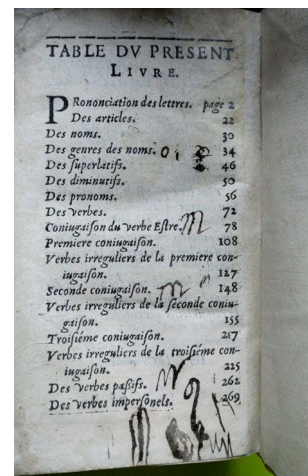 TABLE DV PRESENT
LIVRE.
PRononciation des lettres. page 2
Des articles. 22
Des noms. 30
Des genres des noms. 34
Des ſuperlatifs. 46
Des diminutifs. 50
Des pronoms. 56
Des verbes. 72
Coniugaiſon du verbe Eſtre. 78
Premiere coniugaiſon. 108
Verbes irreguliers de la premiere con-
iugaiſon. 127
Seconde coniugaiſon. 148
Verbes irreguliers de la ſeconde coniu-
gaiſon. 155
Troiſiéme coniugaiſon. 217
Verbes irreguliers de la troiſiéme con-
iugaiſon. 225
Des verbes paßifs. 262
Des verbes imperſonels. 269